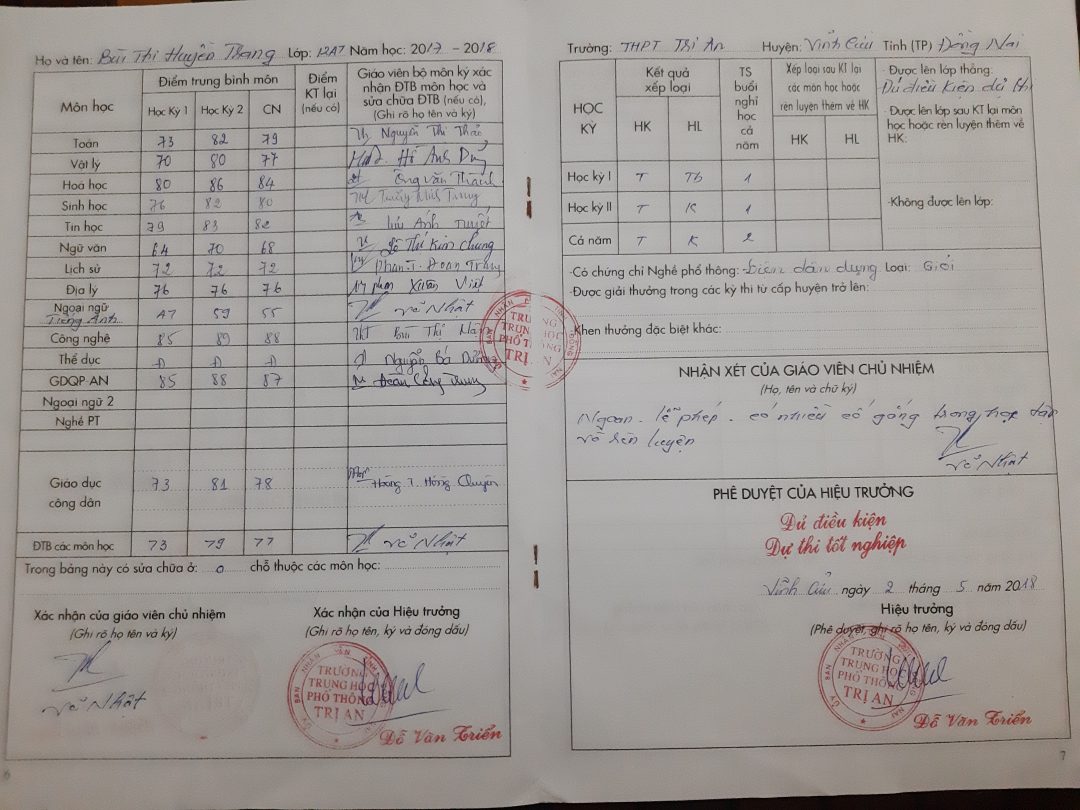 Họ và tên: Bùi Thị Huyền Trang Lớp: 12A7 Năm học: 2017 - 2018
Môn học
Điểm trung bình môn
Học Kỳ 1 Học Kỳ 2 CN
Điểm KT lại (nếu có)
Giáo viên bộ môn ký xác nhận ĐTB môn học và sửa chữa ĐTB (nếu có), (Ghi rõ họ tên và ký)
Toán 73 82 79 Th Nguyễn Thị Thảo
Vật lý 70 80 77 Hồ Anh Dũng
Hoá học 80 86 84 Ông Văn Thành
Sinh học 76 82 80
Tin học 79 83 82 Lưu Ánh Tuyết
Ngữ văn 64 70 68 Lê Thị Kim Chung
Lịch sử 72 72 72 Phan T. Đoan Trang
Địa lý 76 76 76 Phạm Xuân Việt
Ngoại ngữ 47 59 55 Võ Nhật
Tiếng Anh
Công nghệ 85 89 88 Bùi Thị
Thể dục Đ Đ Đ Nguyễn Bá Dương
GDQP-AN 85 88 87 Đoàn Công Trung
Ngoại ngữ 2
Nghề PT
Giáo dục công dân 73 81 78 Hoàng T. Hồng Chuyên
ĐTB các môn học 73 79 77 Võ Nhật
Trong bảng này có sửa chữa ở: 0 chỗ thuộc các môn học:
Xác nhận của giáo viên chủ nhiệm
(Ghi rõ họ tên và ký)
Võ Nhật
Xác nhận của Hiệu trưởng
(Ghi rõ họ tên, ký và đóng dấu)
TRƯỜNG
TRUNG HỌC
PHỔ THÔNG
TRỊ AN
Đỗ Văn Triển
6
TRƯỜNG
TRUNG HỌC
PHỔ THÔNG
TRỊ AN
Trường: THPT Trị An Huyện: Vĩnh Cửu Tỉnh (TP) Đồng Nai
HỌC KỲ
Kết quả xếp loại
HK HL
TS buổi nghỉ học cả năm
Xếp loại sau KT lại các môn học hoặc rèn luyện thêm về HK
HK HL
Học kỳ I T Tb 1
Học kỳ II T K 1
Cả năm T K 2
- Được lên lớp thẳng:
Đủ điều kiện dự thi
- Được lên lớp sau KT lại môn học hoặc rèn luyện thêm về HK:
-Không được lên lớp:
-Có chứng chỉ Nghề phổ thông: Điện dân dụng Loại: Giỏi
-Được giải thưởng trong các kỳ thi từ cấp huyện trở lên:
-Khen thưởng đặc biệt khác:
NHẬN XÉT CỦA GIÁO VIÊN CHỦ NHIỆM
(Họ, tên và chữ ký)
Ngoan - lễ phép - có nhiều cố gắng trong học tập
và rèn luyện
Võ Nhật
PHÊ DUYỆT CỦA HIỆU TRƯỞNG
Đủ điều kiện
Dự thi tốt nghiệp
Vĩnh Cửu ngày 2 tháng 5 năm 2018
Hiệu trưởng
(Phê duyệt, ghi rõ họ tên, ký và đóng dấu)
ỦY BAN NHÂN DÂN TỈNH ĐỒNG NAI
TRƯỜNG
TRUNG HỌC
PHỔ THÔNG
TRỊ AN
Đỗ Văn Triển
7